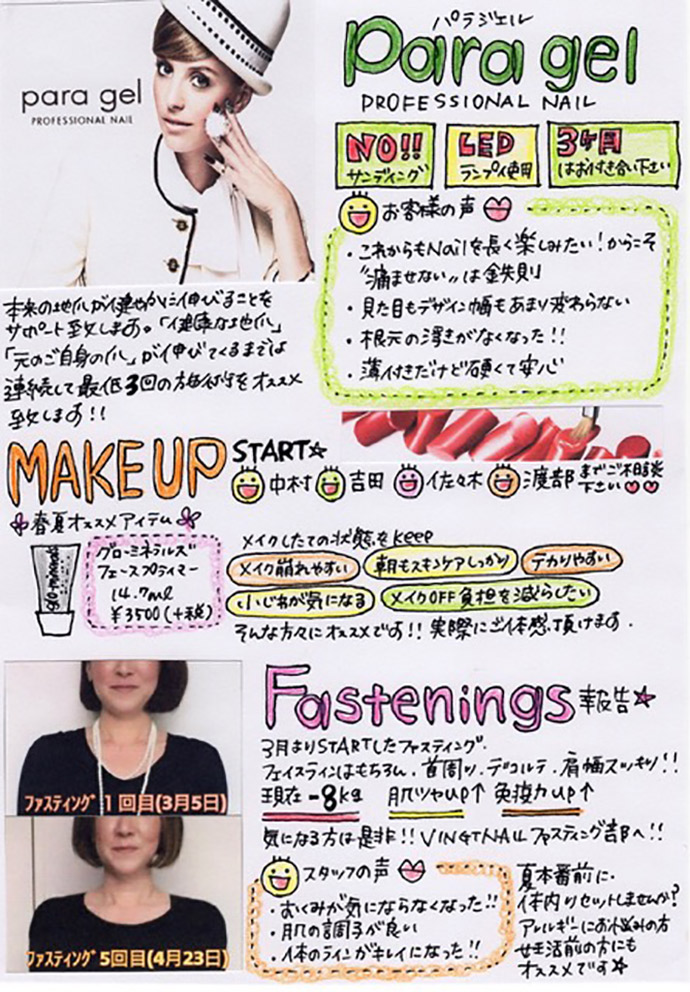 para gel
PROFESSIONAL NAIL
パラジェル
para gel
PROFESSIONAL NAIL
NO!!
サンディング
LED
ランプ使用
3ヶ月
はお付き合い下さい
お客様の声
・これからもNailを長く楽しみたい！からこそ
"痛ませない"は鉄則
・見た目もデザイン幅もあまり変わらない
・根元の浮きがなくなった!!
・薄付きだけど硬くて安心
本来の地爪が健やかに伸びることを
サポート致します。「健康な地爪」
「元のご自身の爪」が伸びてくるまでは
連続して最低3回の施術をオススメ
致します!!
MAKE UP START☆
中村 吉田 佐々木 渡部 までご相談下さい
春夏オススメアイテム
glo-minerals
グローミネラルズ
フェースプライマー
14.7ml
¥3500(+税)
メイクしたての状態をkeep
メイク崩れやすい 朝もスキンケアしっかり テカリやすい
小じわが気になる メイクOFF負担を減らしたい
そんな方々にオススメです!! 実際にご体感頂けます.
Fastenings報告☆
3月よりSTARTしたファスティング.
フェイスラインはもちろん、首周り、デコルテ、肩幅スッキリ!!
現在-8kg 肌ツヤup↑ 免疫力up↑
気になる方は是非!! VINGTNAILファスティング部へ!!
ファスティング1回目(3月5日)
ファスティング5回目(4月23日)
スタッフの声
・むくみが気にならなくなった!!
・肌の調子が良い
・体のラインがキレイになった!!
夏本番前に、
体内リセットしませんか?
アレルギーにお悩みの方
妊活前の方にも
オススメです☆